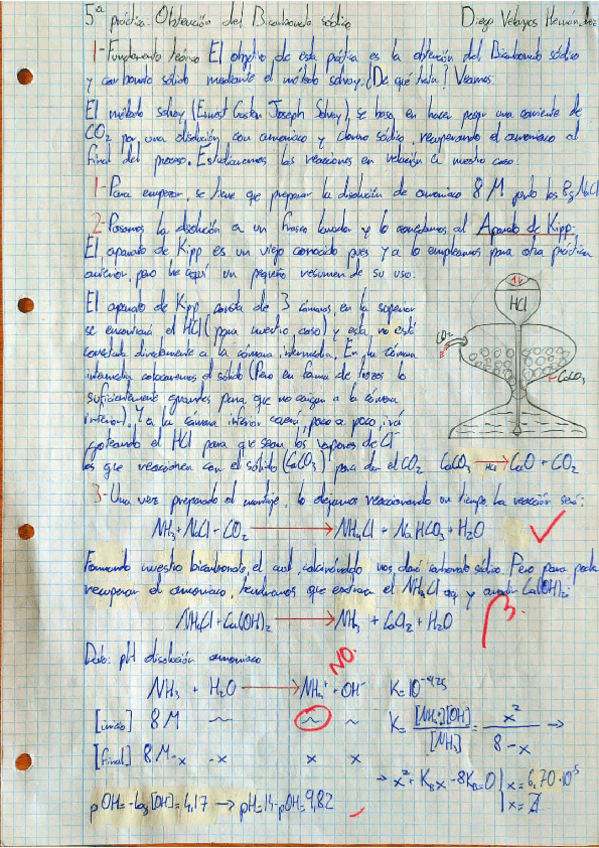 5ª práctica: Obtención del Bicarbonato sódico Diego Velayos Hernández
1-Fundamento teórico El objetivo de esta práctica es la obtención del Bicarbonato sódico
y carbonato sódico mediante el método solvay. ¿De qué trata? Veamos
El método solvay (Ernest Gaston Joseph Solvay), se basa en hacer pasar una corriente de
CO₂ por una disolución con amoniaco y cloruro sódico, recuperando el amoniaco al
final del proceso. Estudiaremos las reacciones en relación a nuestro caso.
1-Para empezar, se tiene que preparar la disolución de amoniaco 8 M junto los 8g NaCl
2-Pasamos la disolución a un frasco lavador y lo conectamos al Aparato de Kipp.
El aparato de Kipp, es un viejo conocido pues ya lo empleamos para otra práctica
anterior, pero he aquí un pequeño resumen de su uso.
El aparato de Kipp consta de 3 cámaras, en la superior
se encontrará el HCl (para nuestro caso) y esta no está
conectada directamente a la cámara intermedia. En la cámara
intermedia colocaremos el sólido (Pero en forma de trozos lo
suficientemente grandes para que no caigan a la cámara
inferior). Y a la cámara inferior caerá, poco a poco, irá
goteando el HCl para que sean los vapores de Cl
los que reaccionen con el sólido (CaCO₃) para dar el CO₂ CaCO₃ HCl → CaO + CO₂
HCl
CO₂
CaCO₃
3-Una vez preparado el montaje, lo dejamos reaccionando un tiempo, la reacción será:
NH₃ + NaCl + CO₂ → NH₄Cl + NaHCO₃ + H₂O
Formando nuestro bicarbonato, el cual, calcinándolo nos dará carbonato sódico. Pero para poder
recuperar el amoniaco, tendremos que extraer el NH₄Cl aq y añadir Ca(OH)₂:
NH₄Cl + Ca(OH)₂ → NH₃ + CaCl₂ + H₂O
Dato: pH disolución amoniaco
NO.
NH₃ + H₂O → NH₄⁺ + OH⁻ K=10⁻⁴'²⁵
[inicio] 8 M ~ ~ ~ K= [NH₄⁺][OH⁻] / [NH₃] = x² / 8-x →
[final] 8 M-x -x x x
→ x² + Kbx - 8Kb = 0 { x = 6,70·10⁻⁵
pOH=-log[OH]=4,17 → pH=14-pOH=9,82 x =